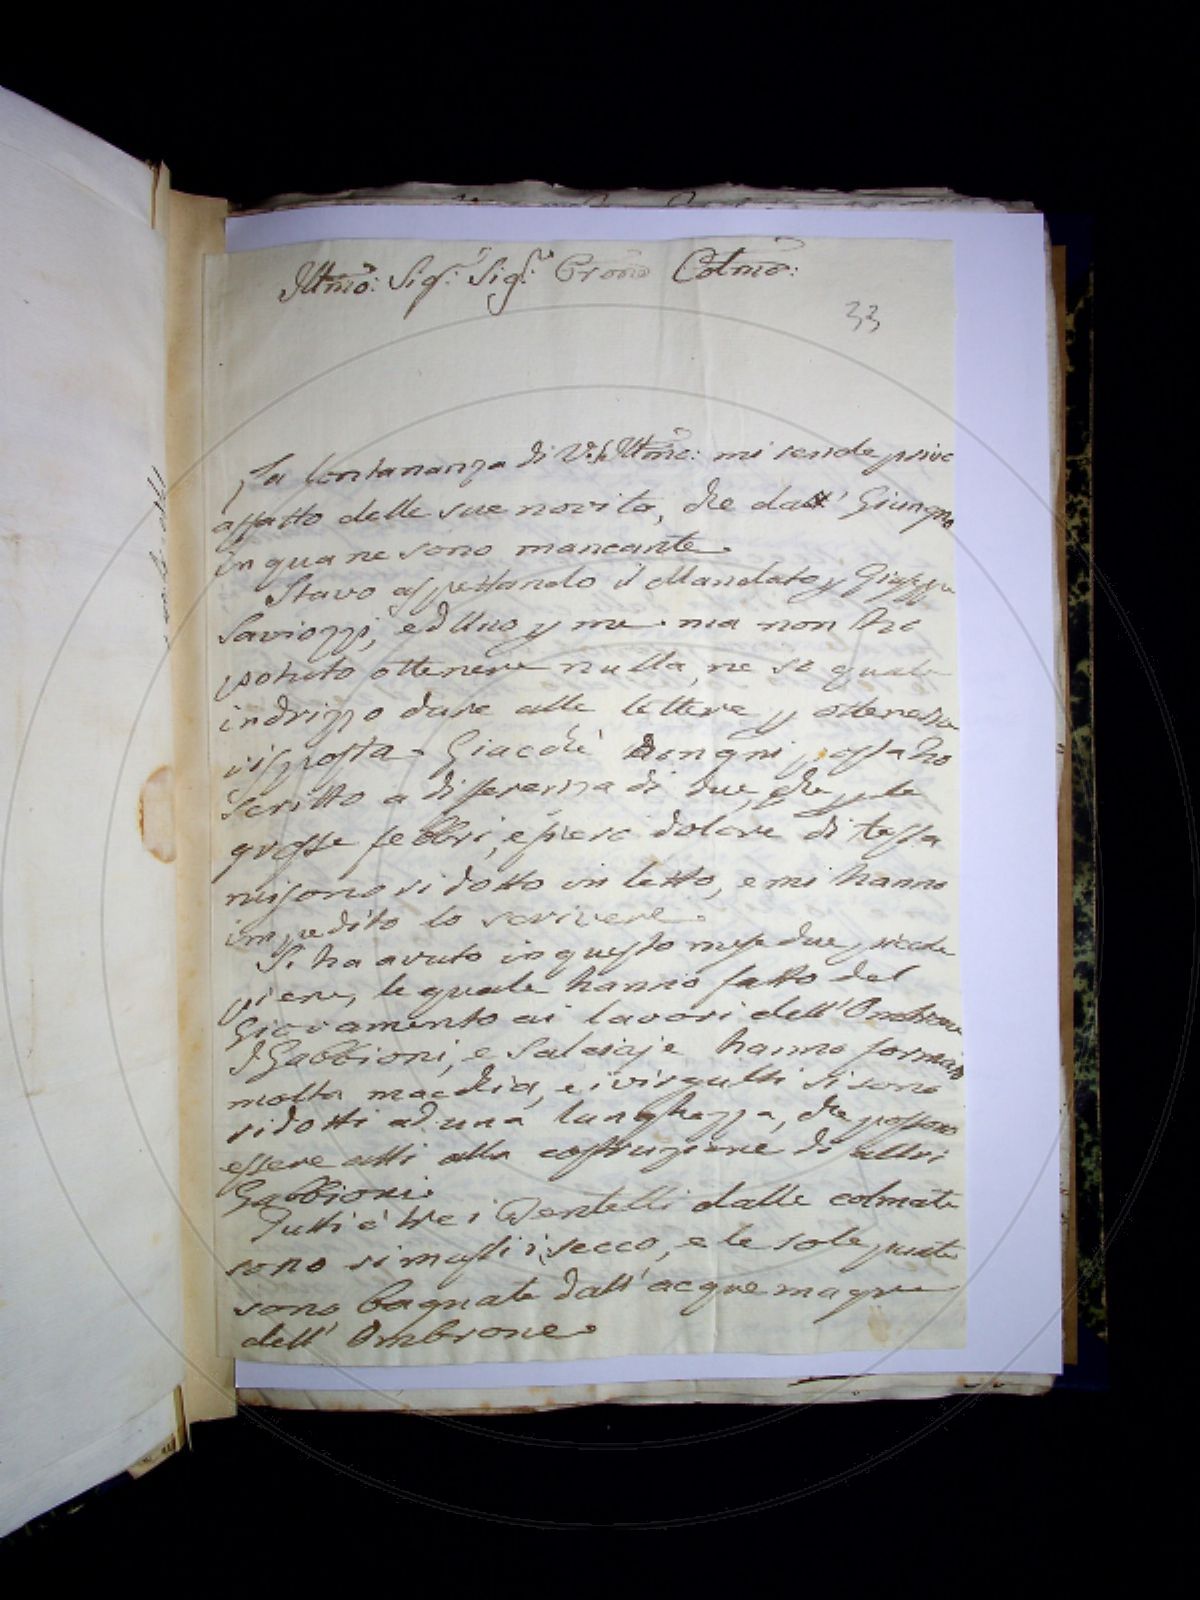 Illmo: Sigr: Sigr: Prone Colmo:
33
La lontananza di V.S. Illma: mi rende prive
affatto delle sue novita, che dall' Giungno
in qua ne sono mancante.
Stavo aspettando il Mandato p Giuseppe
Saviozzi, ed Uno p me. ma non ho
potuto ottenere nulla, ne so quale
indrizzo dare alle lettere p ottenerne
risposta. Giacchè ongni possta ho
scritto a diferenza di due, che p le
grosse febbri, e fiero dolore di tessta
mi sono ridotto in letto, e mi hanno
impedito lo scrivere.
Si ha avuto in questo mese due piccole
piene, le quale hanno fatto del
Giovamento ai lavori dell' Ombrone
I Gabbioni, e Salciaje hanno formato
molta macchia, e i virgulti si sono
ridotti ad una lunghezza, che possono
essere atti alla costruzione di altri
Gabbioni.
Tutti e tre i Pentelli dalle colmate
sono rimassti i secco, e le sole
sono bagnate dall' acque magre
dell' Ombrone.